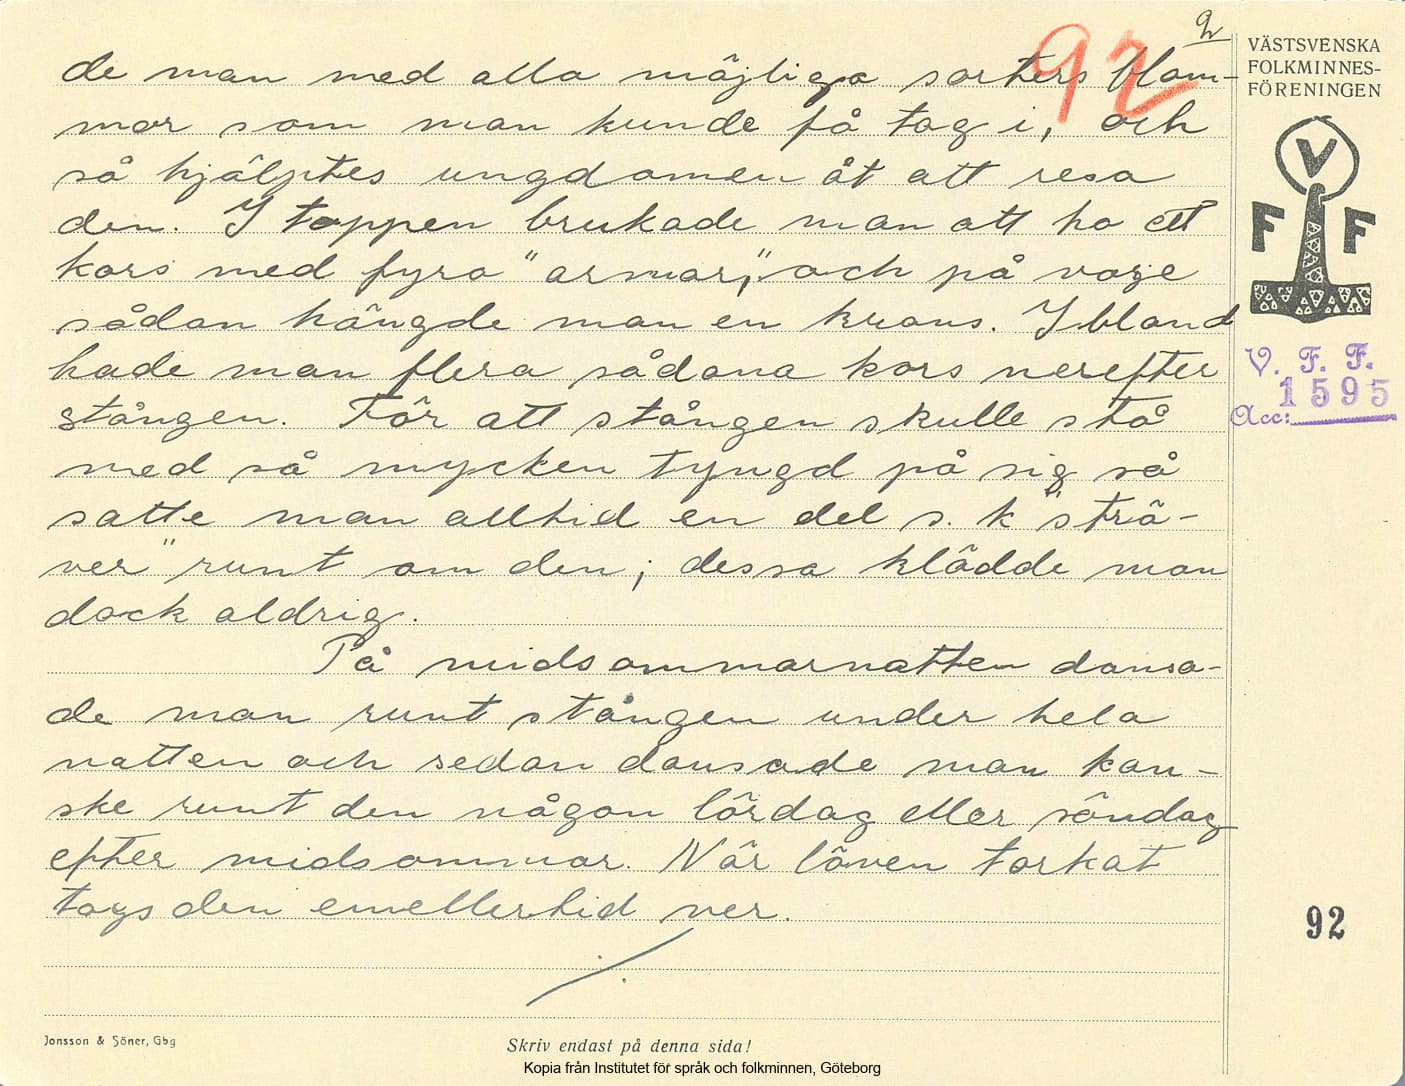 2
92
VÄSTSVENSKA
FOLKMINNES-
FÖRENINGEN
V
F F
V. F. F.
1595
Acc:
de man med alla möjliga sorters blom-
mor som man kunde få tag i, och
så hjälptes ungdomen åt att resa
den. I toppen brukade man att ha ett
kors med fyra "armar", och på varje
sådan hängde man en krans. Ibland
hade man flera sådana kors nerefter
stången. För att stången skulle stå
med så mycken tyngd på sig så
satte man alltid en del s. k "strä-
ver" runt om den; dessa klädde man
dock aldrig.
På midsommarnatten dansa-
de man runt stången under hela
natten och sedan dansade man kan-
ske runt den någon lördag eller söndag
efter midsommar. När löven torkat
togs den emellertid ner.
92
Jonsson & Söner, Gbg
Skriv endast på denna sida!
Kopia från Institutet för språk och folkminnen, Göteborg